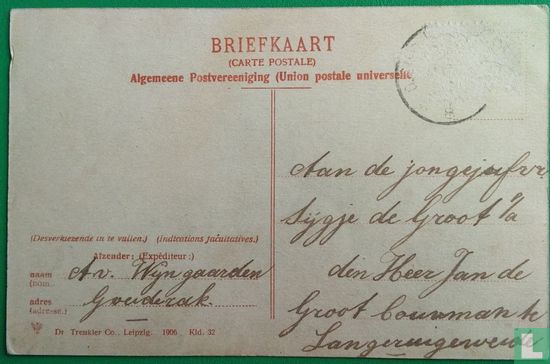 BRIEFKAART
(CARTE POSTALE)
Algemeene Postvereeniging (Union postale universelle)
Aan de jongejufvr
Sijgje de Groot p/a
den Heer Jan de
Groot Bouwman te
Langeruigeweide
(Desverkiezende in te vullen.) (Indications facultatives.)
Afzender: (Expéditeur:)
naam A. v. Wijngaarden
(nom.
adres Gouderak.
(adresse.)
Dr Trenkler Co., Leipzig. 1906 Kld. 32
catawiki